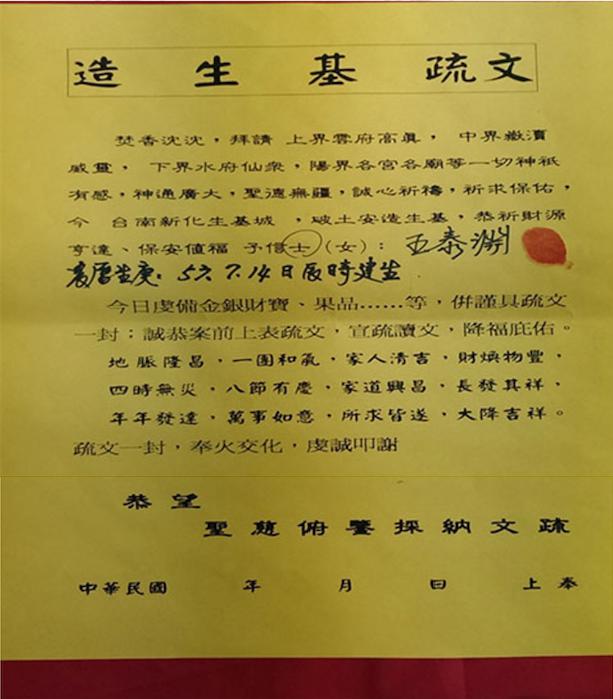 造生基疏文
焚香沈沈，拜請 上界雲府高真， 中界嶽瀆
威靈， 下界水府仙眾，陽界各宮各廟等一切神祇
有感，神通廣大，聖德無疆，誠心祈禱，祈求保佑，
今 台南新化生基城 ，破土安造生基，恭祈財源
亨達、保安值福 予信士（女）：王泰淵
農曆生庚：57.7.14日辰時建生
今日虔備金銀財寶、果品……等，併謹具疏文
一封；誠恭案前上表疏文，宣疏讀文，降福庇佑。
地脈隆昌，一團和氣，家人清吉，財煥物豐，
四時無災，八節有慶，家道興昌，長發其祥，
年年發達，萬事如意，所求皆遂，大降吉祥。
疏文一封，奉火交化，虔誠叩謝
恭望
聖慈俯鑒採納文疏
中華民國 年 月 日 上奉